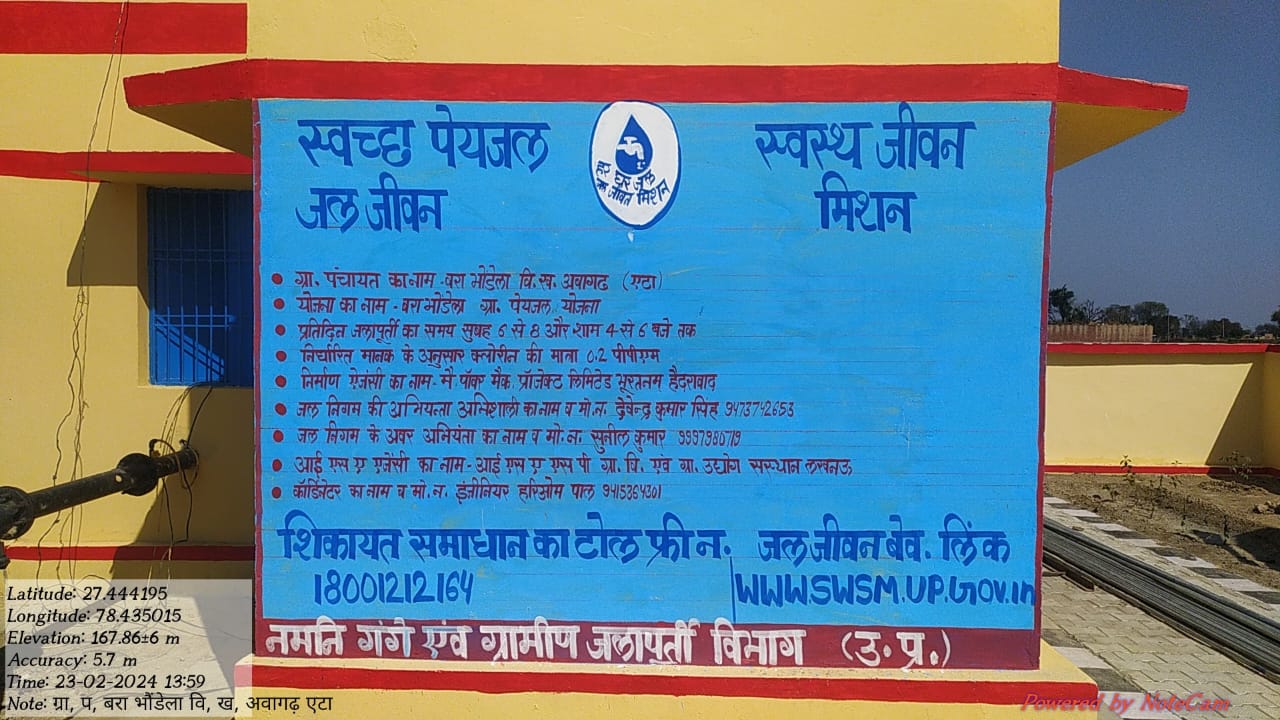 स्वच्छा पेयजल
स्वस्थ जीवन
हर घर जल
के जीवन मिशन
जल जीवन
मिशन
• ग्रा. पंचायत का नाम - बरा भोंडेला वि.ख. अवागढ (एटा)
• योजना का नाम - बरा भोंडेला ग्रा. पेयजल योजना
• प्रतिदिन जलापूर्ती का समय सुबह 6 से 8 और शाम 4 से 6 बजे तक
• निर्धारित मानक के अनुसार क्लोरीन की मात्रा 0.2 पीपीएम
• निर्माण ऐजंसी का नाम - मै. पॉवर मैक. प्रॉजेक्ट लिमिटेड हैदराबाद
• जल निगम की अभियन्ता का नाम व मो.न. देवेन्द्र कुमार सिंह 9473742653
• जल निगम के अवर अभियंता का नाम व मो.न. सुनील कुमार 9997980719
• आई एस ए एजेंसी का नाम - आई एस ए एस पी ग्रा. वि. एवं ग्रा. उद्योग सस्थान लखनउ
• कॉर्डिनेटर का नाम व मो.न. इंजीनियर हरिओम पाल 9415364301
शिकायत समाधान का टोल फ्री न.
18001212164
जल जीवन बेव. लिंक
WWW.SWSM.UP.Gov.in
नमनि गंगे एंव ग्रामीण जलापूर्ती विभाग (उ.प्र.)
Latitude: 27.444195
Longitude: 78.435015
Elevation: 167.86±6 m
Accuracy: 5.7 m
Time: 23-02-2024 13:59
Note: ग्रा, प, बरा भौंडेला वि, ख, अवागढ़ एटा
Powered by NoteCam